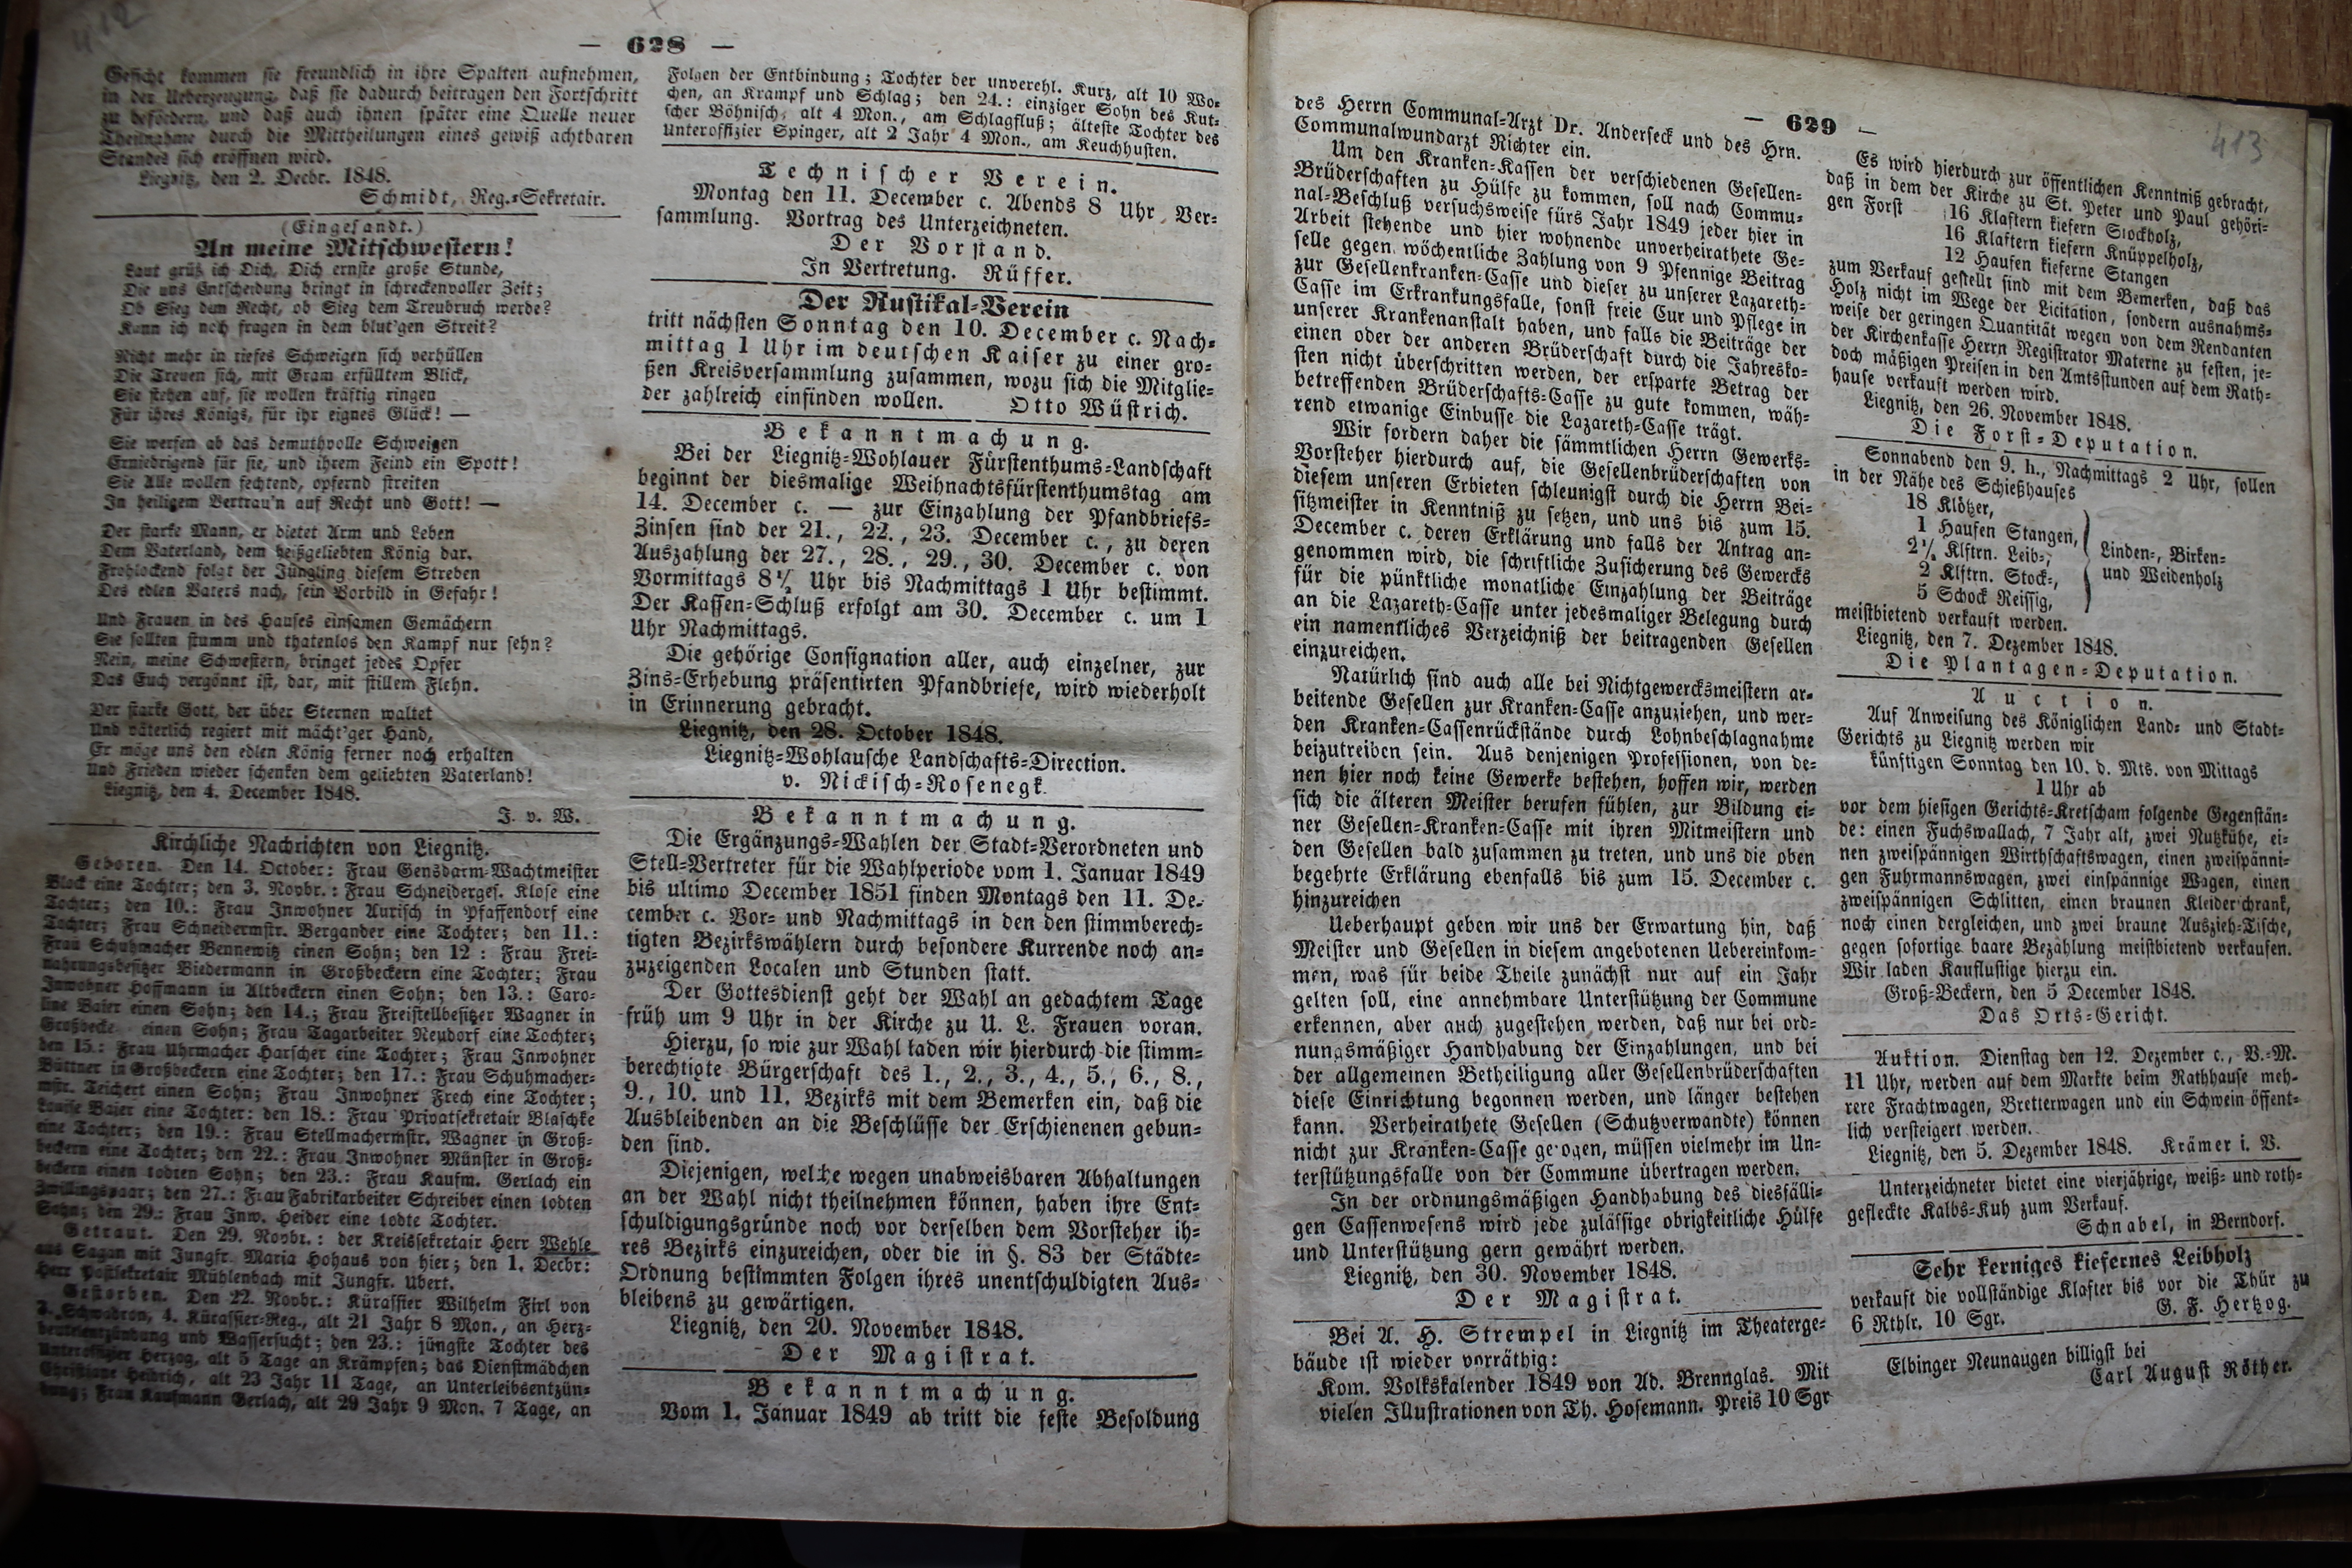 412
— 628 —
Gesicht kommen sie freundlich in ihre Spalten aufnehmen,
in der Ueberzeugung, daß sie dadurch beitragen den Fortschritt
zu befördern, und daß auch ihnen später eine Quelle neuer
Theilnahme durch die Mittheilungen eines gewiß achtbaren
Standes sich eröffnen wird.
Liegnitz, den 2. Decbr. 1848.
Schmidt, Reg.=Sekretair.
(Eingesandt.)
An meine Mitschwestern!
Laut grüß ich Dich, Dich ernste große Stunde,
Die uns Entscheidung bringt in schreckenvoller Zeit;
Ob Sieg dem Recht, ob Sieg dem Treubruch werde?
Kann ich noch fragen in dem blut'gen Streit?
Nicht mehr in tiefes Schweigen sich verhüllen
Die Treuen sich, mit Gram erfülltem Blick,
Sie stehen auf, sie wollen kräftig ringen
Für ihres Königs, für ihr eignes Glück! —
Sie werfen ab das demuthvolle Schweigen
Erniedrigend für sie, und ihrem Feind ein Spott!
Sie Alle wollen fechtend, opfernd streiten
In heiligem Vertrau'n auf Recht und Gott! —
Der starke Mann, er bietet Arm und Leben
Dem Vaterland, dem heißgeliebten König dar.
Frohlockend folgt der Jüngling diesem Streben
Des edlen Vaters nach, sein Vorbild in Gefahr!
Und Frauen in des Hauses einsamen Gemächern
Sie sollten stumm und thatenlos den Kampf nur sehn?
Nein, meine Schwestern, bringet jedes Opfer
Das Euch vergönnt ist, dar, mit stillem Flehn.
Der starke Gott, der über Sternen waltet
Und väterlich regiert mit mächt'ger Hand,
Er möge uns den edlen König ferner noch erhalten
Und Frieden wieder schenken dem geliebten Vaterland!
Liegnitz, den 4. December 1848.
J. v. W.
Kirchliche Nachrichten von Liegnitz.
Geboren. Den 14. October: Frau Gensdarm=Wachtmeister
Block eine Tochter; den 3. Novbr.: Frau Schneiderges. Klose eine
Tochter; den 10.: Frau Inwohner Aurisch in Pfaffendorf eine
Tochter; Frau Schneidermstr. Bergander eine Tochter; den 11.:
Frau Schuhmacher Bennewitz einen Sohn; den 12: Frau Frei=
nahrungsbesitzer Biedermann in Großbeckern eine Tochter; Frau
Inwohner Hoffmann in Altbeckern einen Sohn; den 13.: Caro=
line Baier einen Sohn; den 14.; Frau Freistellbesitzer Wagner in
Großbecke einen Sohn; Frau Tagarbeiter Neudorf eine Tochter;
den 15.: Frau Uhrmacher Harscher eine Tochter; Frau Inwohner
Büttner in Großbeckern eine Tochter; den 17.: Frau Schuhmacher=
mstr. Teichert einen Sohn; Frau Inwohner Frech eine Tochter;
Louise Baier eine Tochter: den 18.: Frau Privatsekretair Blaschke
eine Tochter; den 19.: Frau Stellmachermstr. Wagner in Groß=
beckern eine Tochter; den 22.: Frau Inwohner Münster in Groß=
beckern einen todten Sohn; den 23.: Frau Kaufm. Gerlach ein
Zwillingspaar; den 27.: Frau Fabrikarbeiter Schreiber einen todten
Sohn; den 29.: Frau Inw. Heider eine todte Tochter.
Getraut. Den 29. Novbr.: der Kreissekretair Herr Wehle
aus Sagan mit Jungfr. Maria Hohaus von hier; den 1. Decbr:
Herr Postsekretair Mühlenbach mit Jungfr. Ubert.
Gestorben. Den 22. Novbr.: Kürassier Wilhelm Firl von
3. Schwadron, 4. Kürassier=Reg., alt 21 Jahr 8 Mon., an Herz=
beutelentzündung und Wassersucht; den 23.: jüngste Tochter des
Unteroffizier Herzog, alt 5 Tage an Krämpfen; das Dienstmädchen
Christiane Heidrich, alt 23 Jahr 11 Tage, an Unterleibsentzün=
dung; Frau Kaufmann Gerlach, alt 29 Jahr 9 Mon. 7 Tage, an
Folgen der Entbindung; Tochter der unverehl. Kurz, alt 10 Wo=
chen, an Krampf und Schlag; den 24.: einziger Sohn des Kut=
scher Böhnisch, alt 4 Mon., am Schlagfluß; älteste Tochter des
Unteroffizier Spinger, alt 2 Jahr 4 Mon., am Keuchhusten.
Technischer Verein.
Montag den 11. December c. Abends 8 Uhr Ver=
sammlung. Vortrag des Unterzeichneten.
Der Vorstand.
In Vertretung. Rüffer.
Der Rustikal=Verein
tritt nächsten Sonntag den 10. December c. Nach=
mittag 1 Uhr im deutschen Kaiser zu einer gro=
ßen Kreisversammlung zusammen, wozu sich die Mitglie=
der zahlreich einfinden wollen. Otto Wüstrich.
Bekanntmachung.
Bei der Liegnitz=Wohlauer Fürstenthums=Landschaft
beginnt der diesmalige Weihnachtsfürstenthumstag am
14. December c. — zur Einzahlung der Pfandbriefs=
Zinsen sind der 21., 22., 23. December c., zu deren
Auszahlung der 27., 28., 29., 30. December c. von
Vormittags 8½ Uhr bis Nachmittags 1 Uhr bestimmt.
Der Kassen=Schluß erfolgt am 30. December c. um 1
Uhr Nachmittags.
Die gehörige Consignation aller, auch einzelner, zur
Zins=Erhebung präsentirten Pfandbriefe, wird wiederholt
in Erinnerung gebracht.
Liegnitz, den 28. October 1848.
Liegnitz=Wohlausche Landschafts=Direction.
v. Nickisch=Rosenegk.
Bekanntmachung.
Die Ergänzungs=Wahlen der Stadt=Verordneten und
Stell=Vertreter für die Wahlperiode vom 1. Januar 1849
bis ultimo December 1851 finden Montags den 11. De=
cember c. Vor= und Nachmittags in den den stimmberech=
tigten Bezirkswählern durch besondere Kurrende noch an=
zuzeigenden Localen und Stunden statt.
Der Gottesdienst geht der Wahl an gedachtem Tage
früh um 9 Uhr in der Kirche zu U. L. Frauen voran.
Hierzu, so wie zur Wahl laden wir hierdurch die stimm=
berechtigte Bürgerschaft des 1., 2., 3., 4., 5., 6., 8.,
9., 10. und 11. Bezirks mit dem Bemerken ein, daß die
Ausbleibenden an die Beschlüsse der Erschienenen gebun=
den sind.
Diejenigen, welche wegen unabweisbaren Abhaltungen
an der Wahl nicht theilnehmen können, haben ihre Ent=
schuldigungsgründe noch vor derselben dem Vorsteher ih=
res Bezirks einzureichen, oder die in §. 83 der Städte=
Ordnung bestimmten Folgen ihres unentschuldigten Aus=
bleibens zu gewärtigen.
Liegnitz, den 20. November 1848.
Der Magistrat.
Bekanntmachung.
Vom 1. Januar 1849 ab tritt die feste Besoldung
— 629 —
413
des Herrn Communal=Arzt Dr. Anderseck und des Hrn.
Communalwundarzt Richter ein.
Um den Kranken=Kassen der verschiedenen Gesellen=
Brüderschaften zu Hülfe zu kommen, soll nach Commu=
nal=Beschluß versuchsweise fürs Jahr 1849 jeder hier in
Arbeit stehende und hier wohnende unverheirathete Ge=
selle gegen wöchentliche Zahlung von 9 Pfennige Beitrag
zur Gesellenkranken=Casse und dieser zu unserer Lazareth=
Casse im Erkrankungsfalle, sonst freie Cur und Pflege in
unserer Krankenanstalt haben, und falls die Beiträge der
einen oder der anderen Brüderschaft durch die Jahresko=
sten nicht überschritten werden, der ersparte Betrag der
betreffenden Brüderschafts=Casse zu gute kommen, wäh=
rend etwanige Einbusse die Lazareth=Casse trägt.
Wir fordern daher die sämmtlichen Herrn Gewerks=
Vorsteher hierdurch auf, die Gesellenbrüderschaften von
diesem unseren Erbieten schleunigst durch die Herrn Bei=
sitzmeister in Kenntniß zu setzen, und uns bis zum 15.
December c. deren Erklärung und falls der Antrag an=
genommen wird, die schriftliche Zusicherung des Gewercks
für die pünktliche monatliche Einzahlung der Beiträge
an die Lazareth=Casse unter jedesmaliger Belegung durch
ein namentliches Verzeichniß der beitragenden Gesellen
einzureichen.
Natürlich sind auch alle bei Nichtgewercksmeistern ar=
beitende Gesellen zur Kranken=Casse anzuziehen, und wer=
den Kranken=Cassenrückstände durch Lohnbeschlagnahme
beizutreiben sein. Aus denjenigen Professionen, von de=
nen hier noch keine Gewerke bestehen, hoffen wir, werden
sich die älteren Meister berufen fühlen, zur Bildung ei=
ner Gesellen=Kranken=Casse mit ihren Mitmeistern und
den Gesellen bald zusammen zu treten, und uns die oben
begehrte Erklärung ebenfalls bis zum 15. December c.
hinzureichen
Ueberhaupt geben wir uns der Erwartung hin, daß
Meister und Gesellen in diesem angebotenen Uebereinkom=
men, was für beide Theile zunächst nur auf ein Jahr
gelten soll, eine annehmbare Unterstützung der Commune
erkennen, aber auch zugestehen werden, daß nur bei ord=
nungsmäßiger Handhabung der Einzahlungen, und bei
der allgemeinen Betheiligung aller Gesellenbrüderschaften
diese Einrichtung begonnen werden, und länger bestehen
kann. Verheirathete Gesellen (Schutzverwandte) können
nicht zur Kranken=Casse gezogen, müssen vielmehr im Un=
terstützungsfalle von der Commune übertragen werden.
In der ordnungsmäßigen Handhabung des diesfälli=
gen Cassenwesens wird jede zulässige obrigkeitliche Hülfe
und Unterstützung gern gewährt werden.
Liegnitz, den 30. November 1848.
Der Magistrat.
Bei A. H. Strempel in Liegnitz im Theaterge=
bäude ist wieder vorräthig:
Kom. Volkskalender 1849 von Ad. Brennglas. Mit
vielen Illustrationen von Th. Hosemann. Preis 10 Sgr
Es wird hierdurch zur öffentlichen Kenntniß gebracht,
daß in dem der Kirche zu St. Peter und Paul gehöri=
gen Forst 16 Klaftern kiefern Stockholz,
16 Klaftern kiefern Knüppelholz,
12 Haufen kieferne Stangen
zum Verkauf gestellt sind mit dem Bemerken, daß das
Holz nicht im Wege der Licitation, sondern ausnahms=
weise der geringen Quantität wegen von dem Rendanten
der Kirchenkasse Herrn Registrator Materne zu festen, je=
doch mäßigen Preisen in den Amtsstunden auf dem Rath=
hause verkauft werden wird.
Liegnitz, den 26. November 1848.
Die Forst=Deputation.
Sonnabend den 9. h., Nachmittags 2 Uhr, sollen
in der Nähe des Schießhauses
18 Klötzer,
1 Haufen Stangen,
2½ Klftrn. Leib=, Linden=, Birken=
2 Klftrn. Stock=, und Weidenholz
5 Schock Reissig,
meistbietend verkauft werden.
Liegnitz, den 7. Dezember 1848.
Die Plantagen=Deputation.
Auction.
Auf Anweisung des Königlichen Land= und Stadt=
Gerichts zu Liegnitz werden wir
künftigen Sonntag den 10. d. Mts. von Mittags
1 Uhr ab
vor dem hiesigen Gerichts=Kretscham folgende Gegenstän=
de: einen Fuchswallach, 7 Jahr alt, zwei Nutzkühe, ei=
nen zweispännigen Wirthschaftswagen, einen zweispänni=
gen Fuhrmannswagen, zwei einspännige Wagen, einen
zweispännigen Schlitten, einen braunen Kleiderschrank,
noch einen dergleichen, und zwei braune Auszieh=Tische,
gegen sofortige baare Bezahlung meistbietend verkaufen.
Wir laden Kauflustige hierzu ein.
Groß=Beckern, den 5 December 1848.
Das Orts=Gericht.
Auktion. Dienstag den 12. Dezember c., V.=M.
11 Uhr, werden auf dem Markte beim Rathhause meh=
rere Frachtwagen, Bretterwagen und ein Schwein öffent=
lich versteigert werden.
Liegnitz, den 5. Dezember 1848. Krämer i. V.
Unterzeichneter bietet eine vierjährige, weiß= und roth=
gefleckte Kalbs=Kuh zum Verkauf.
Schnabel, in Berndorf.
Sehr kerniges kiefernes Leibholz
verkauft die vollständige Klafter bis vor die Thür zu
6 Rthlr. 10 Sgr. G. F. Hertzog.
Elbinger Neunaugen billigst bei
Carl August Röther.